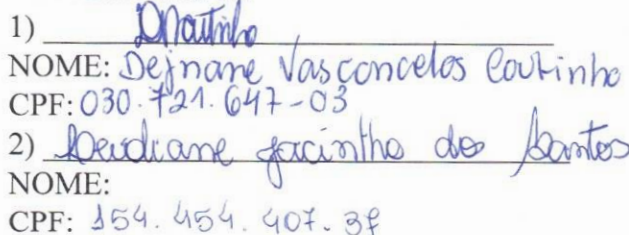 1) DMoutinho
NOME: Dejnane Vasconcelos Coutinho
CPF: 030.721.647-03
2) Deudiane Jacintho do Santos
NOME:
CPF: 154.454.407-37